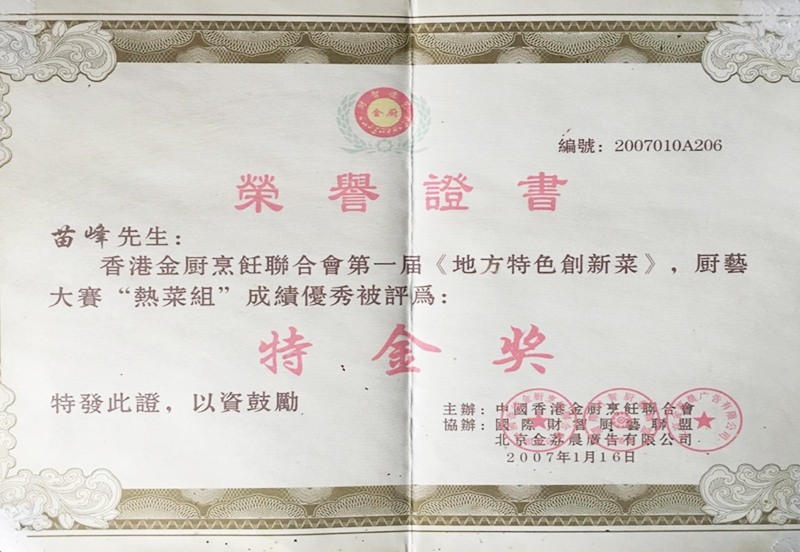 金厨
編號：2007010A206
榮譽證書
苗峰先生：
香港金厨烹飪聯合會第一届《地方特色創新菜》，厨藝
大賽“熱菜組”成績優秀被評爲：
特金奖
特發此證，以資鼓勵
主辦：中國香港金厨烹飪聯合會
協辦：國際財智厨藝聯盟
北京金荔晨廣告有限公司
2007年1月16日